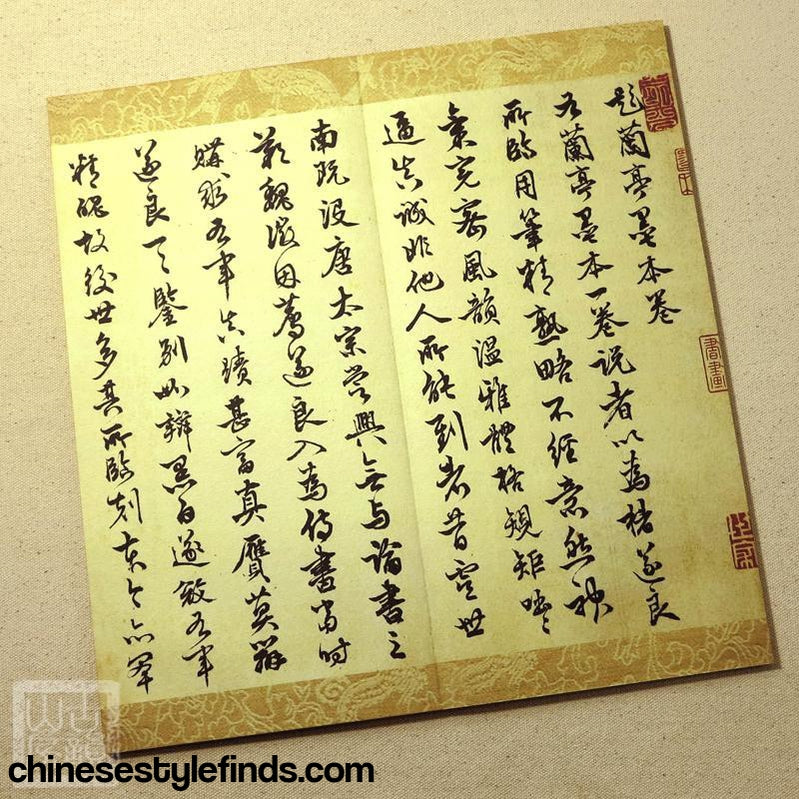 題蘭亭墨本卷
右蘭亭墨本一卷説者以為褚遂良
所臨用筆精熟略不經意然神
氣完密風韻溫雅體格規矩咄咄
逼真誠非他人所能到者昔虞世
南既没唐太宗嘗興無与論書之
歎魏徵因薦遂良入為侍書當時
購求右軍真蹟甚富真贗莫辯
遂良鑒別如辯黑白遂右軍
精魄故後世多其所臨刻本今亦罕
書畫
chinesestylefinds.com